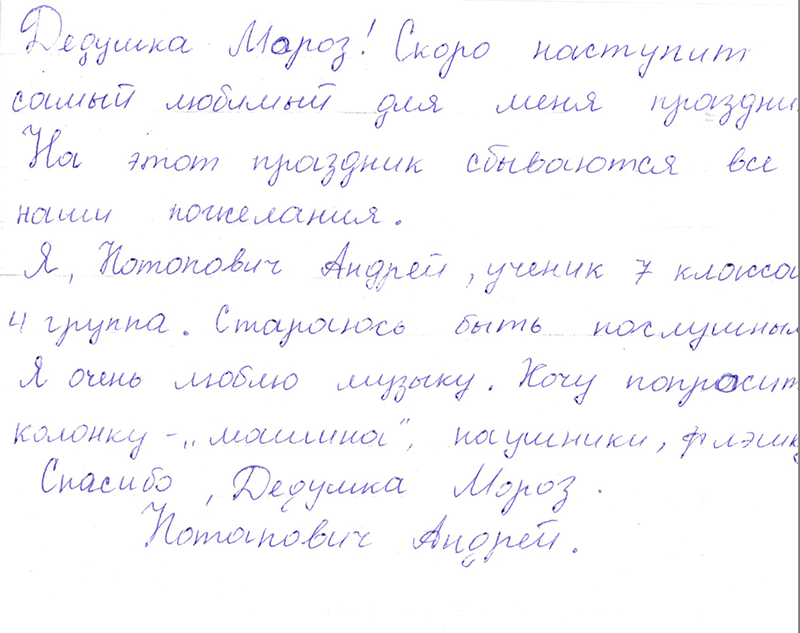 Дедушка Мороз! Скоро наступит
самый любимый для меня праздни
На этот праздник сбываются все
наши пожелания.
Я, Потопович Андрей, ученик 7 класса
4 группа. Стараюсь быть послушным
Я очень люблю музыку. Хочу попросит
колонку - „машина", наушники, флэшк
Спасибо, Дедушка Мороз.
Потапович Андрей.